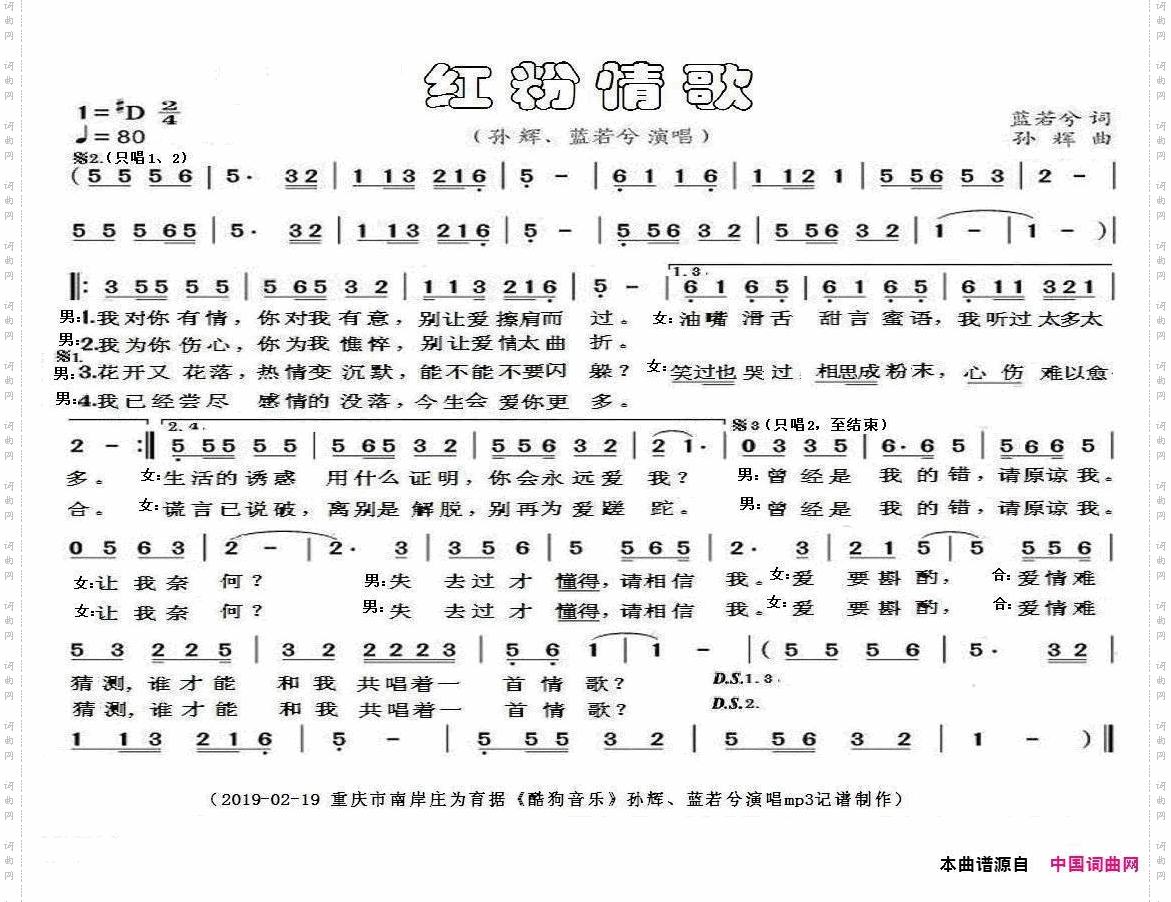 红粉情歌
1=#D 2/4
♩=80
(孙辉、蓝若兮演唱)
蓝若兮 词
孙辉 曲
𝄋2.(只唱1、2)
(5 5 5 6 | 5· 32 | 1 13 216 | 5 - | 6 1 1 6 | 1 12 1 | 5 56 5 3 | 2 - |
5 5 5 65 | 5· 32 | 1 13 216 | 5 - | 5 56 3 2 | 5 56 3 2 | 1 - | 1 - )|
1.3.
‖: 3 55 5 5 | 5 65 3 2 | 1 1 3 216 | 5 - | 6 1 6 5 | 6 1 6 5 | 6 11 321 |
男:1.我对你有情，你对我有意，别让爱擦肩而 过。 女:油嘴 滑舌 甜言蜜语，我听过太多太
男:2.我为你伤心，你为我憔悴，别让爱情太曲 折。
𝄋1.
男:3.花开又 花落，热情变沉默，能不能不要闪 躲？ 女:笑过也哭过，相思成粉末，心伤难以愈
男:4.我已经尝尽 感情的没落，今生会 爱你更 多。
2.4. 𝄋3(只唱2，至结束)
2 - :‖ 5 55 5 5 | 5 65 3 2 | 5 56 3 2 | 2 1· | 0 3 3 5 | 6· 6 5 | 5 66 5 |
多。 女:生活的诱惑 用什么证明，你会永远爱 我？ 男:曾经是 我的错，请原谅我。
合。 女:谎言已说破，离别是解脱，别再为爱蹉 跎。 男:曾经是 我的错，请原谅我。
0 5 6 3 | 2 - | 2· 3 | 3 5 6 | 5 565 | 2· 3 | 2 1 5 | 5 556 |
女:让我奈 何？ 男:失 去过才 懂得，请相信 我。女:爱 要斟酌， 合:爱情难
女:让我奈 何？ 男:失 去过才 懂得，请相信 我。女:爱 要斟酌， 合:爱情难
5 3 2 2 5 | 3 2 2 2 2 3 | 5 6 1 | 1 - |(5 5 5 6 | 5· 32 |
猜测，谁才能 和我 共唱着一 首情 歌？ D.S.1.3.
猜测，谁才能 和我 共唱着一 首情 歌？ D.S.2.
1 13 216 | 5 - | 5 55 3 2 | 5 56 3 2 | 1 - )‖
(2019-02-19 重庆市南岸庄为育据《酷狗音乐》孙辉、蓝若兮演唱mp3记谱制作)
本曲谱源自 中国词曲网